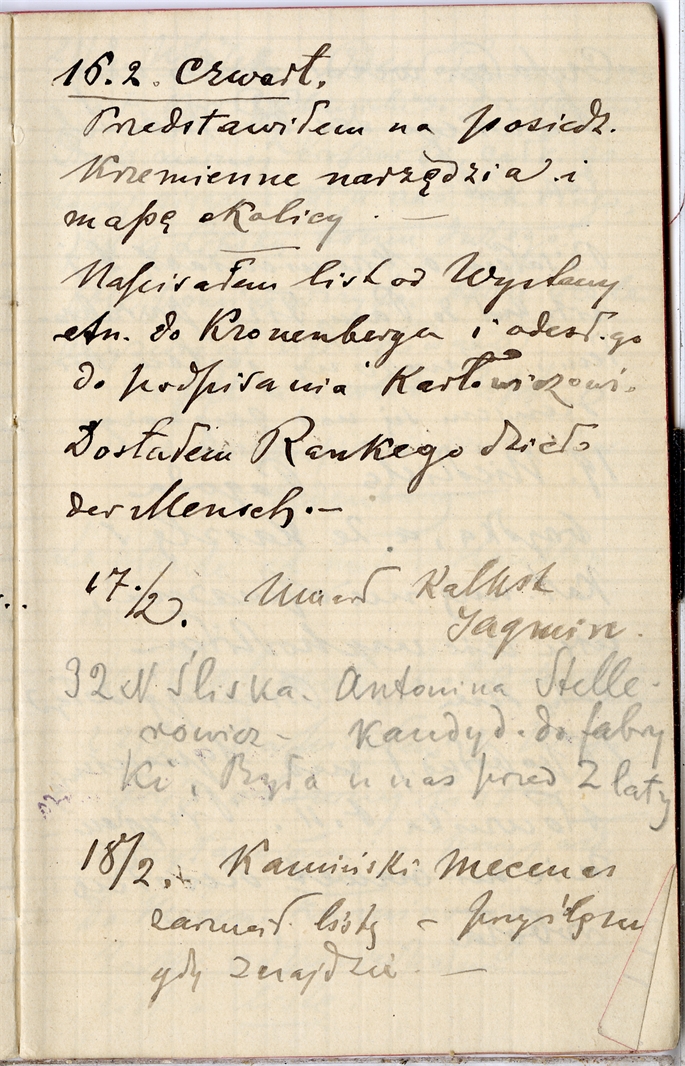 16.2. Czwart.
Przedstawiłem na posiedz.
Krzemienne narzędzia i
mapę okolicy. —
Napisałem list od Wystawy
etn. do Kronenberga i odesł. go
do podpisania Karłowiczowi.
Dostałem Rankego dzieło
der Mensch. —
17./2. Umarł Kalikst
Jagmin.
32 N Śliska. Antonina Stelle-
rowicz – kandyd. do fabry
ki, Była u nas przed 2 laty
18/2. Kamiński mecenas
listę –
gdy znajdzie. —